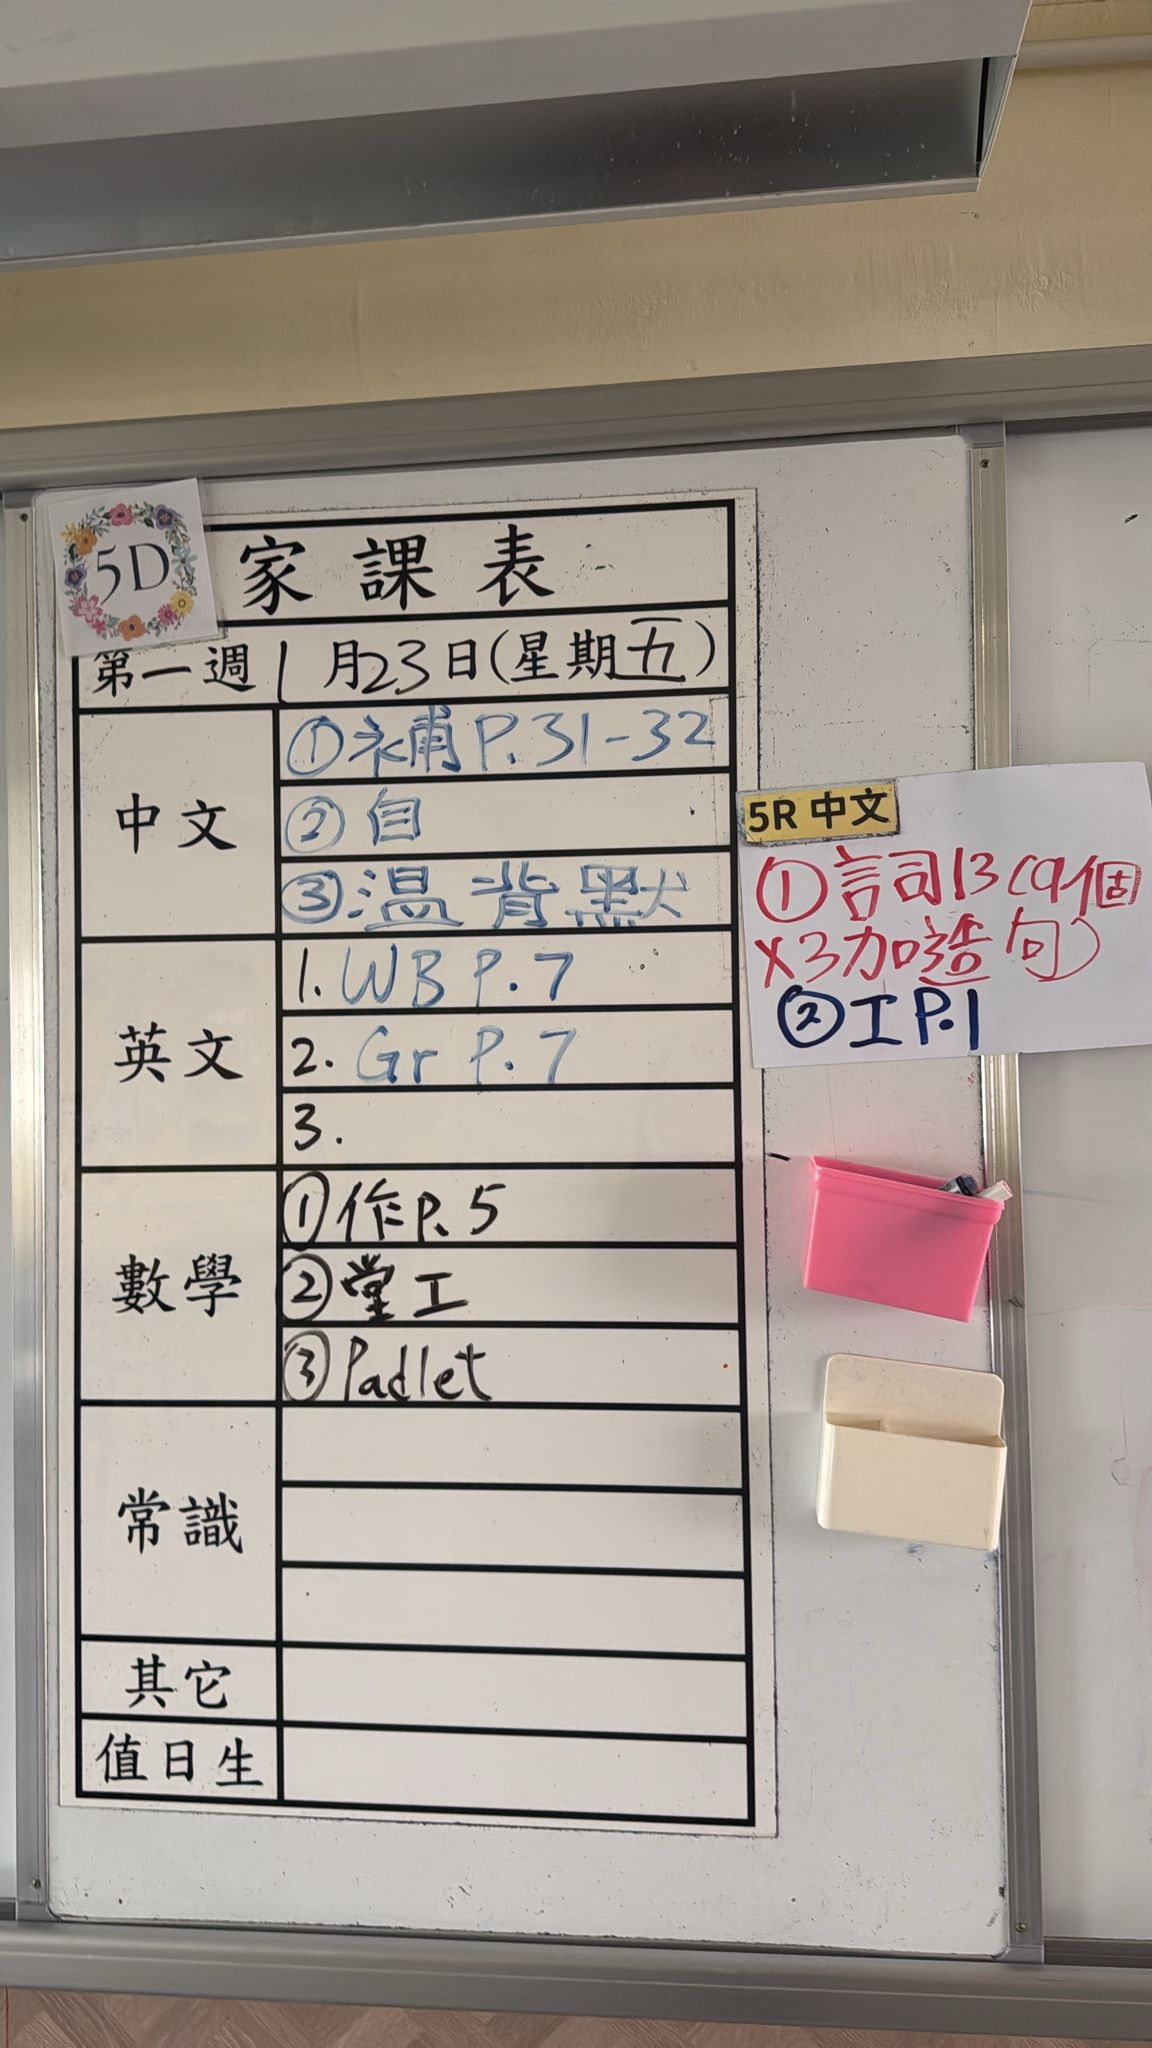 5D
家課表
第一週 1月23日(星期五)
中文
①補 P.31-32
②自
③温背默
英文
1. WB P.7
2. Gr P.7
3.
數學
①作P.5
②堂工
③Padlet
常識
其它
值日生
5R 中文
①詞13(9個
x3加造句)
②工P.1